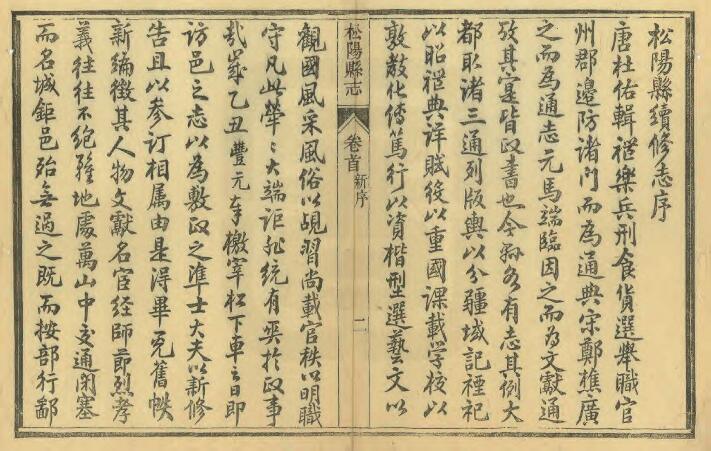 松陽縣續修志序
唐杜佑輯禮樂兵刑食貨選舉職官
州郡邊防諸門而為通典宋鄭樵廣
之而為通志元馬端臨因之而為文獻通
攷其寔皆政書也今縣各有志其例大
都取諸三通列版輿以分疆域記禋祀
以昭禮典詳賦役以重國課載學校以
敦教化傳篤行以資楷型選藝文以
松陽縣志
卷首 新序
二
觀國風采風俗以覘習尚載官秩以明職
守凡此犖〻大端詎非統有裨於政事
哉歲乙丑豐元奉檄宰松下車之日即
訪邑之志以為敷政之準士大夫以新修
告且以參訂相属由是得畢覓舊帙
新編徵其人物文獻名宦經師節烈孝
義往往不絕雖地處萬山中交通閉塞
而名城鉅邑殆無過之既而按部行鄙